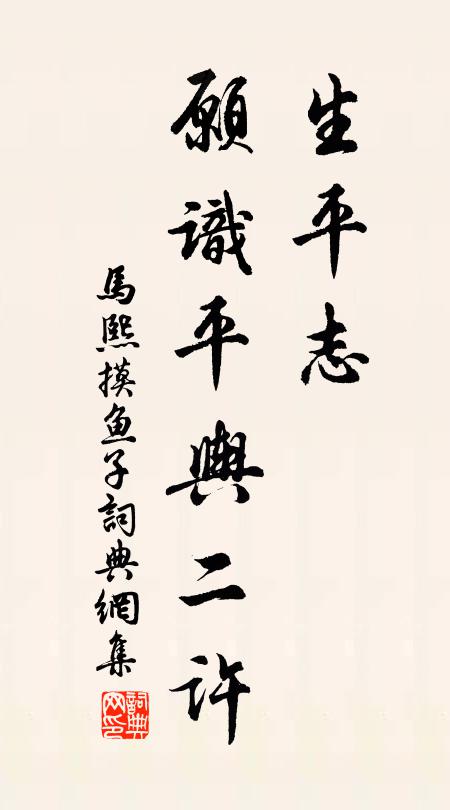 生平志
願識平輿二許
馬熙摸魚子詞典網集
詞典网印